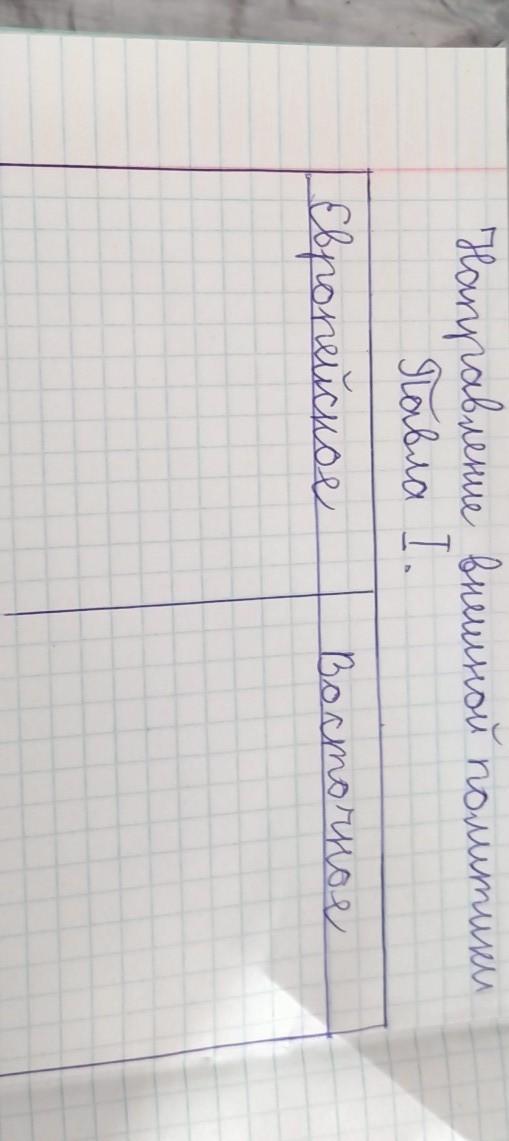 Направление внешной политики
Павла I.
Европейское Восточное